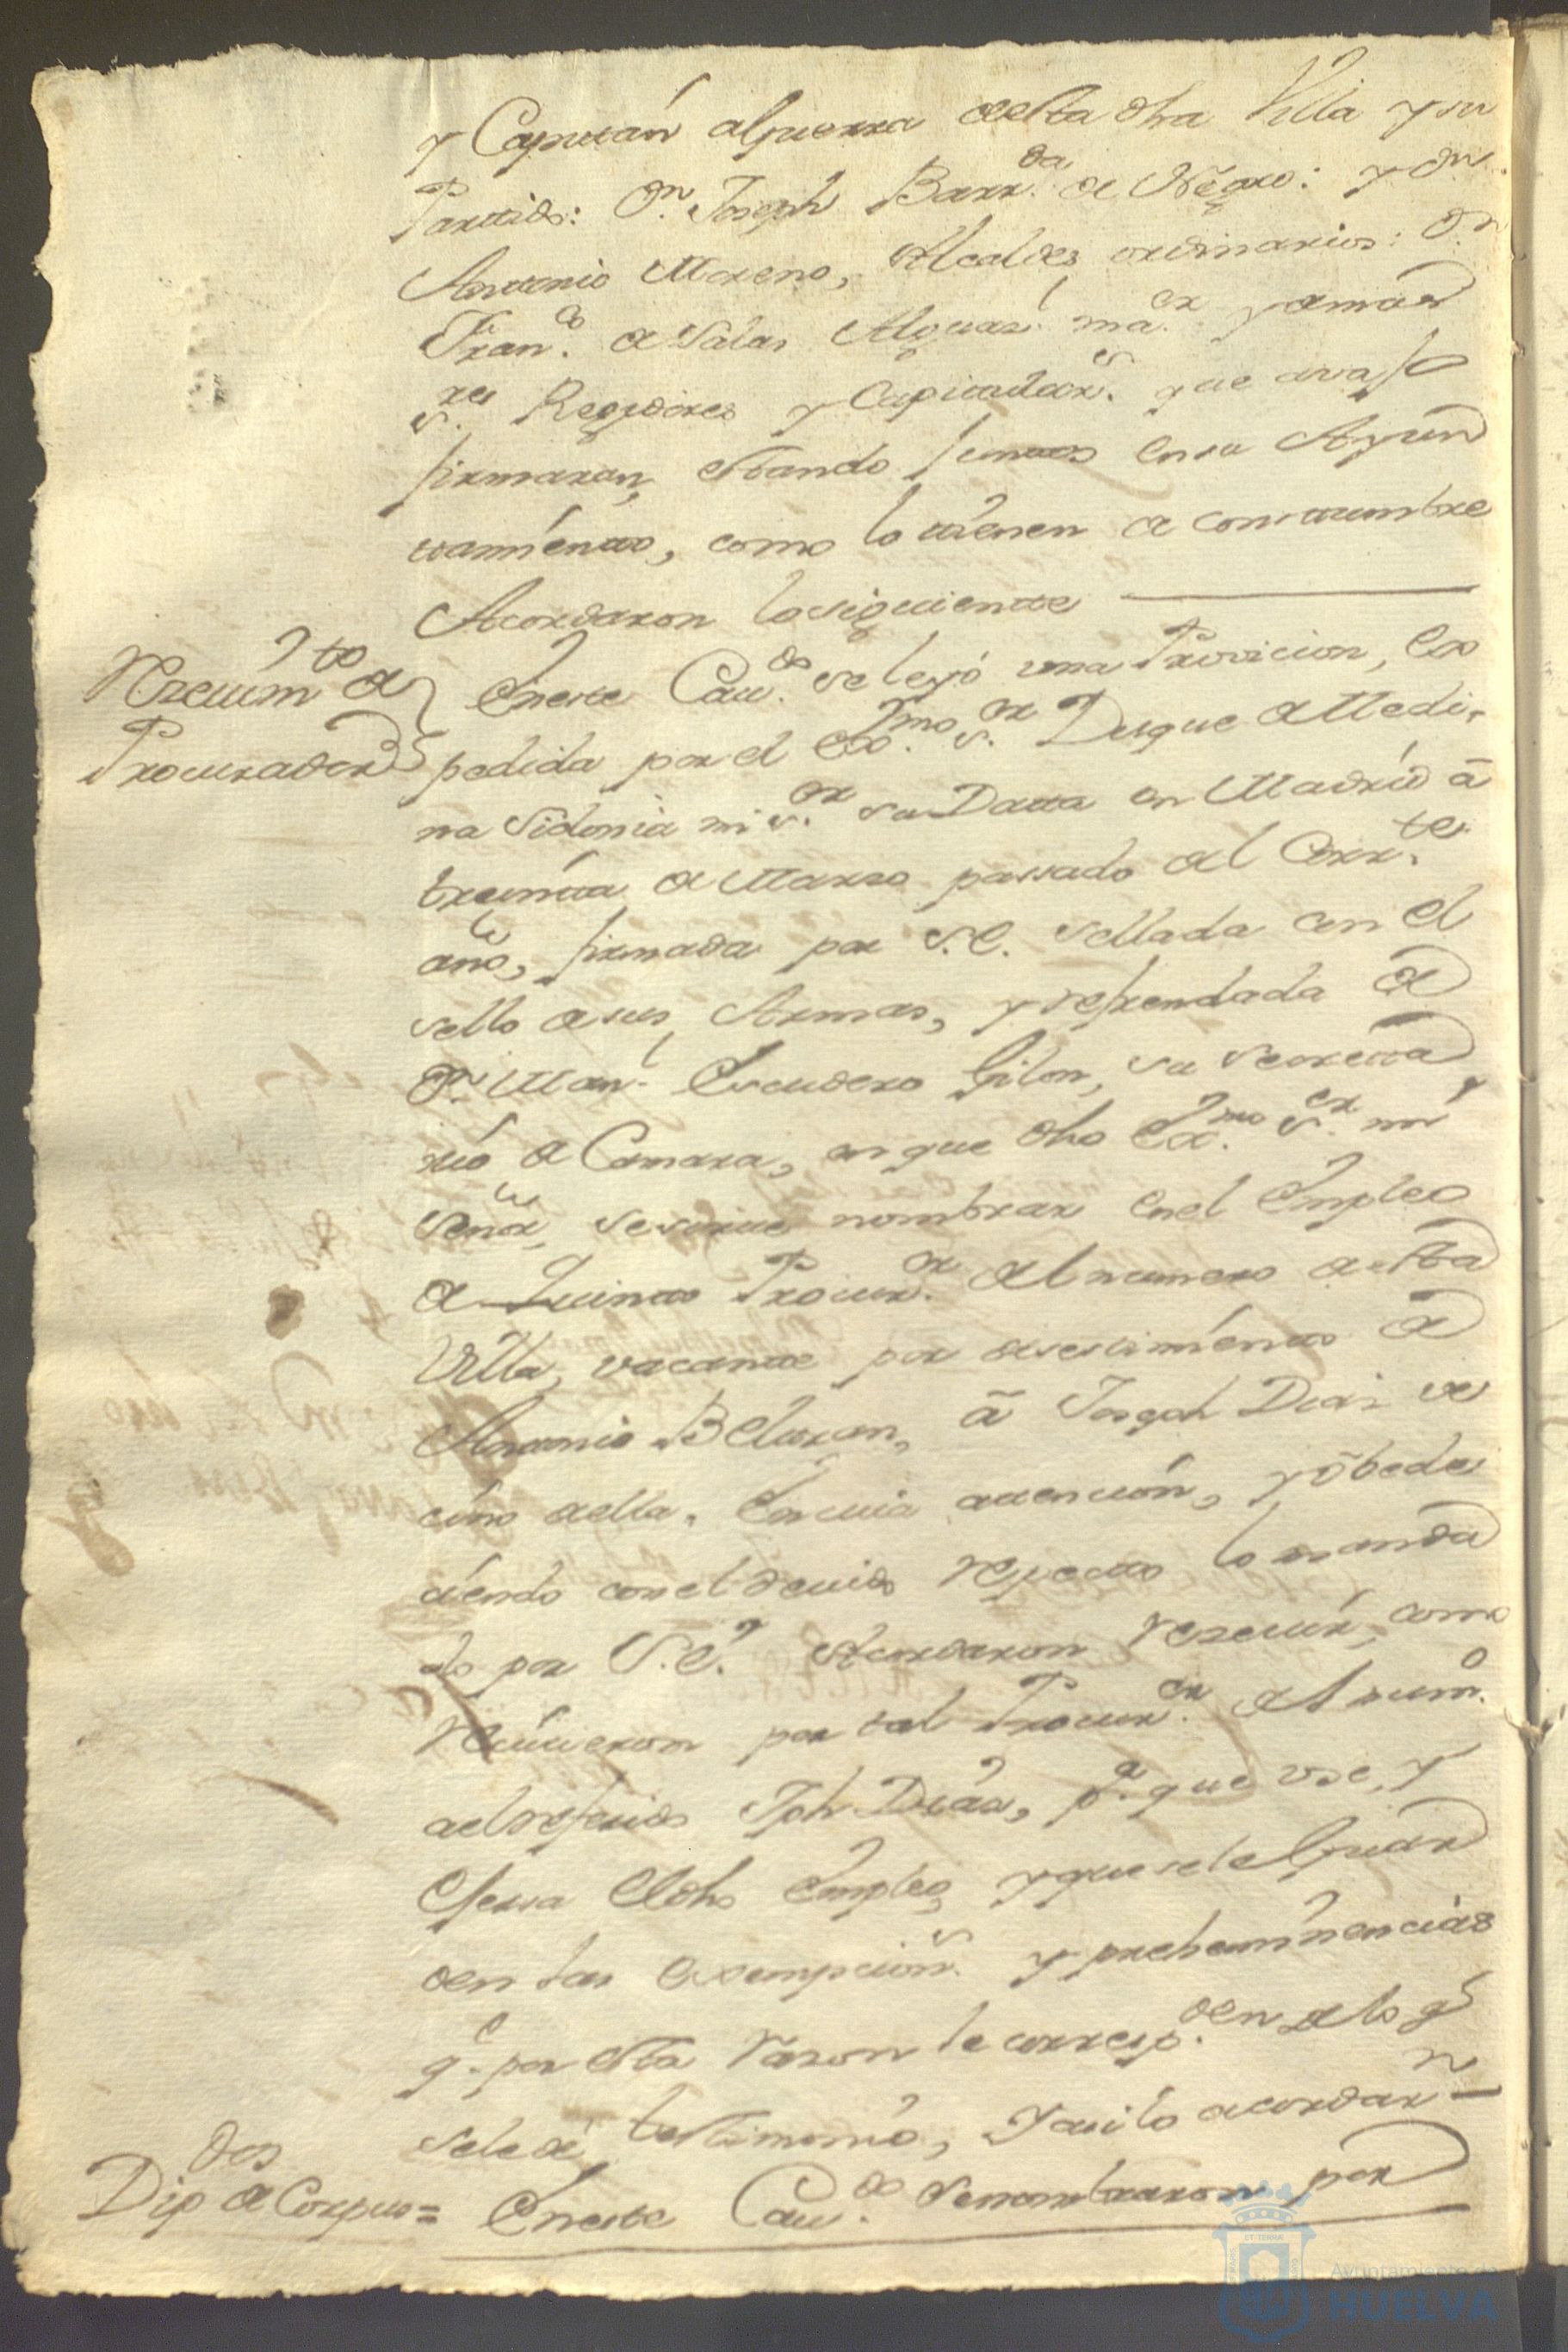 y Capitán aguerra desta dha Villa y su
Partido: Dn. Joseph Barr.da de Negro: y Dn.
Antonio Moreno, Alcaldes ordinarios: Dn
Fran.co de Salas Alguasl. ma.or y demas
s.res Regidores y Capitulars. que avajo
firmaran, estando juntos en su Ayun
tamiento, como lo tienen de constumbre
Acordaron lo siguiente
Reciuim.to de
Procurador
En este Cau.do se leyó una Provicion, Ex
pedida por el Exmo. s.or Duque de Medi-
na Sidonia mi s.or su Data en Madrid á
treinta de Marzo passado del Corr.te
año, firmada por S.E. sellada con el
sello de sus Armas, y refrendada de
Dn. Manl. Escudero Gilon, su secreta
rio de Camara, en que dho Exmo. s.or mi
señor, se sirue nombrar en el Empleo
de Quinto Procur.or del numero desta
Villa, vacante por desestimiento de
Antonio Beltran, á Joseph Dias ve
cino della. En cuia atencion, y óbede
ciendo con el deuido respecto lo manda
do por S.E. Acordaron Reciuir, como
Reciuieron por tal Procur.or del num.o
al referido Jph Dias, p.a que use, y
Exersa El dho Empleo, y que se le Guar
den las Exempcions. y preheminencias
q. por esta rason le corresp.den de lo q.
se le dé testimonio, Y asi lo acordarn
Dip.dos de Corpus =
En este Cau.do se nombraron por
Ayuntamiento de
HUELVA